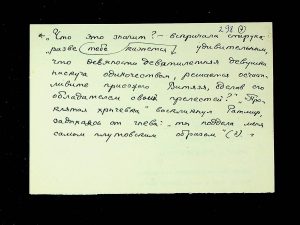 298 (9)
„Что это значит? – вскричала старуха –
разве тебе кажется удивительным,
что девяностодевятилетняя девушка
наскуча одиночеством, решается осчаст-
ливить приезжего Витязя, сделав его
обладателем своих прелестей?" „Про-
клятая хрычевка" воскликнул Ратмир,
задыхаясь от гнева: „ты поддела меня
самым плутовским образом" (2)